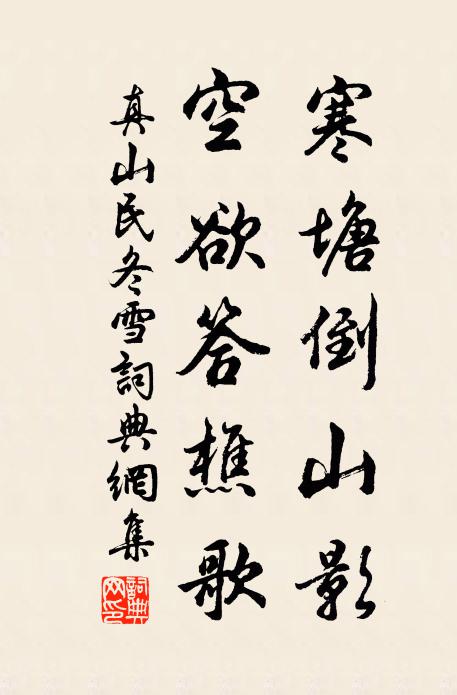 寒塘倒山影
空欲答樵歌
真山民冬雪詞典網集
詞典网印